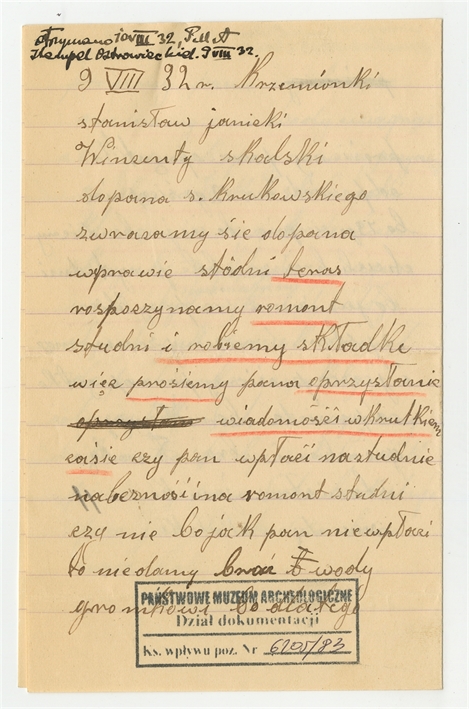 otrzymano 10 VIII 32, Pull A
Stempel Ostrowiec Kiel. 9 VIII 32.
9 VIII 32 r. Krzemionki
stanisław janicki
Winsenty skalski
dopana s. krukowskiego
zwracamy śie dopana
wprawie stódni teras
rospoczynamy romont
studni i robiemy składkę
więc prośiemy pana oprzysłanie
oprzysłan wiadomośći wkrutkiem
caśie czy pan wpłaći nastudnie
nabeznośi ina romont studni
czy nie bo jak pan niewpłaći
to niedamy brać wody
gromkowi bo dlatego
PAŃSTWOWE MUZEUM ARCHEOLOGICZNE
Dział dokumentacji
Ks. wpływu poz. Nr 6205/83